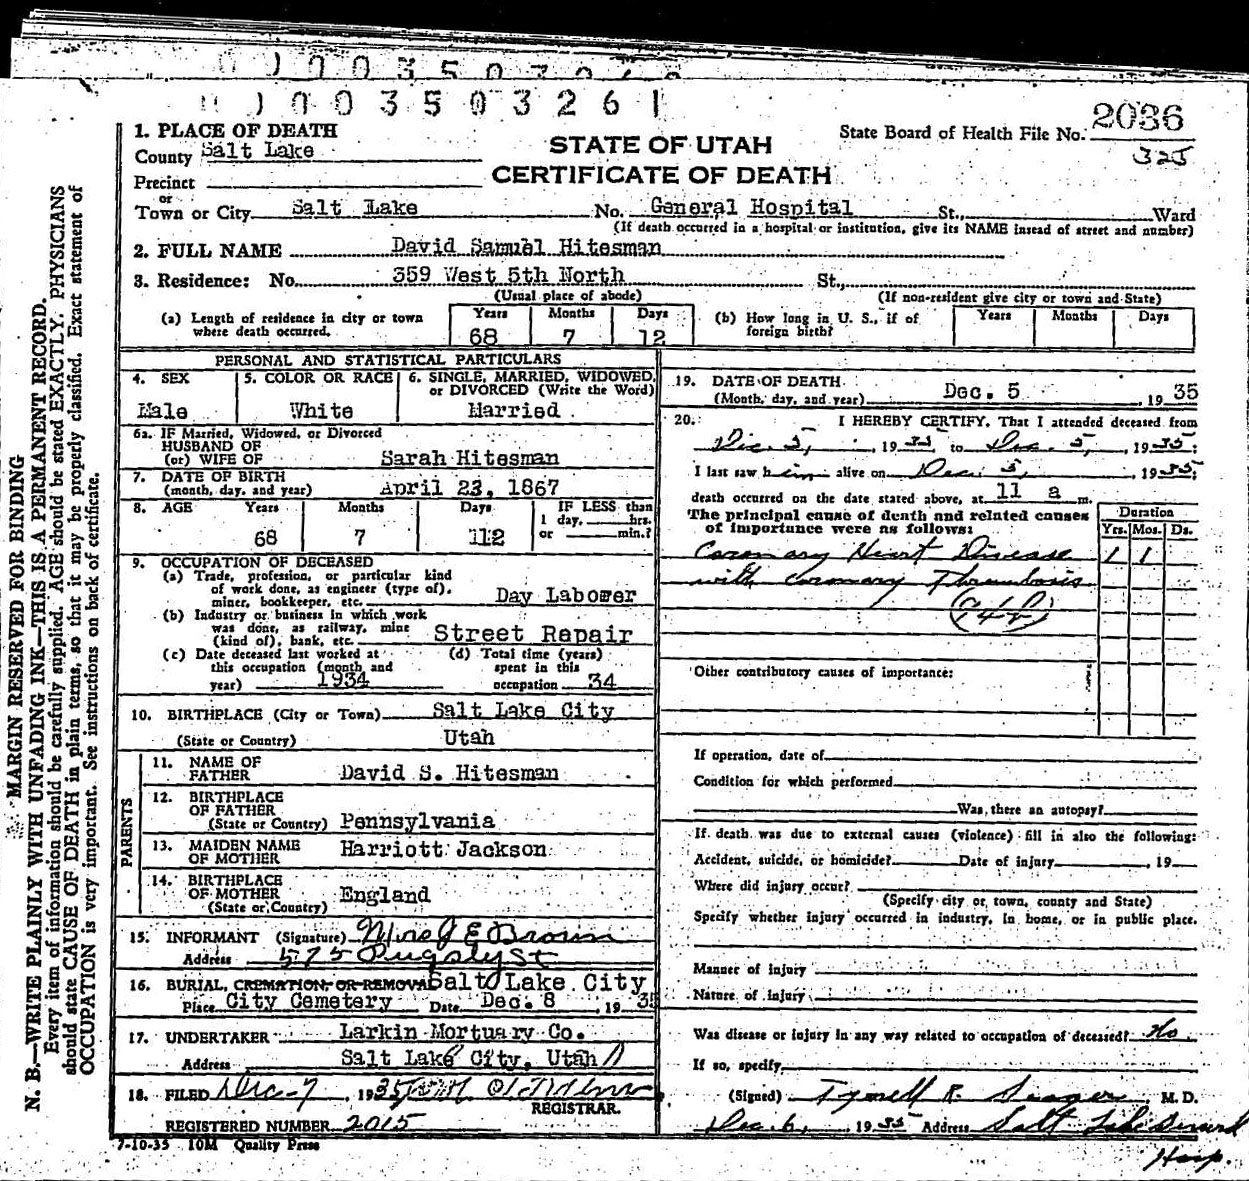 0 0 3 5 0 3 2 6 1
2036
State Board of Health File No.
325
STATE OF UTAH
CERTIFICATE OF DEATH
1. PLACE OF DEATH
County Salt Lake
Precinct
or
Town or City Salt Lake No. General Hospital St., Ward
(If death occurred in a hospital or institution, give its NAME instead of street and number)
2. FULL NAME David Samuel Hitesman
3. Residence: No. 359 West 5th North St.,
(Usual place of abode) (If non-resident give city or town and State)
(a) Length of residence in city or town where death occurred. Years 68 Months 7 Days 12
(b) How long in U. S., if of foreign birth? Years Months Days
PERSONAL AND STATISTICAL PARTICULARS
4. SEX Male
5. COLOR OR RACE White
6. SINGLE, MARRIED, WIDOWED, or DIVORCED (Write the Word) Married
6a. IF Married, Widowed, or Divorced
HUSBAND OF
(or) WIFE OF Sarah Hitesman
7. DATE OF BIRTH
(month, day, and year) April 23, 1867
8. AGE Years 68 Months 7 Days 112
IF LESS than
1 day, hrs.
or min.?
9. OCCUPATION OF DECEASED
(a) Trade, profession, or particular kind
of work done, as engineer (type of),
miner, bookkeeper, etc. Day Laborer
(b) Industry or business in which work
was done, as railway, mine
(kind of), bank, etc. Street Repair
(c) Date deceased last worked at
this occupation (month and
year) 1934
(d) Total time (years)
spent in this
occupation 34
10. BIRTHPLACE (City or Town) Salt Lake City
(State or Country) Utah
PARENTS
11. NAME OF
FATHER David S. Hitesman
12. BIRTHPLACE
OF FATHER
(State or Country) Pennsylvania
13. MAIDEN NAME
OF MOTHER Harriott Jackson
14. BIRTHPLACE
OF MOTHER
(State or Country) England
15. INFORMANT (Signature) Mrs J E Brown
Address 575 Pugsly St
16. BURIAL, CREMATION OR REMOVAL Salt Lake City
Place City Cemetery Date Dec. 8, 1935
17. UNDERTAKER Larkin Mortuary Co.
Address Salt Lake City, Utah
18. FILED Dec-7 1935
REGISTRAR.
REGISTERED NUMBER 2015
7-10-35 10M Quality Press
19. DATE OF DEATH
(Month, day, and year) Dec. 5, 1935
20. I HEREBY CERTIFY, That I attended deceased from
Dec. 5, 1935, to Dec. 5, 1935;
I last saw him alive on Dec. 5, 1935;
death occurred on the date stated above, at 11 a m.
The principal cause of death and related causes
of importance were as follows:
Duration
Yrs. Mos. Ds.
Coronary Heart Disease 1 1
with coronary Thrombosis
(94b)
Other contributory causes of importance:
If operation, date of
Condition for which performed
Was there an autopsy?
If death was due to external causes (violence) fill in also the following:
Accident, suicide, or homicide? Date of injury , 19
Where did injury occur?
(Specify city or town, county and State)
Specify whether injury occurred in industry, in home, or in public place.
Manner of injury
Nature of injury
Was disease or injury in any way related to occupation of deceased? No
If so, specify
(Signed) R. M. D.
Dec. 6, 1935 Address Salt Lake General
Hosp.
MARGIN RESERVED FOR BINDING
N. B.—WRITE PLAINLY WITH UNFADING INK—THIS IS A PERMANENT RECORD.
Every item of information should be carefully supplied. AGE should be stated EXACTLY. PHYSICIANS
should state CAUSE OF DEATH in plain terms, so that it may be properly classified. Exact statement of
OCCUPATION is very important. See instructions on back of certificate.